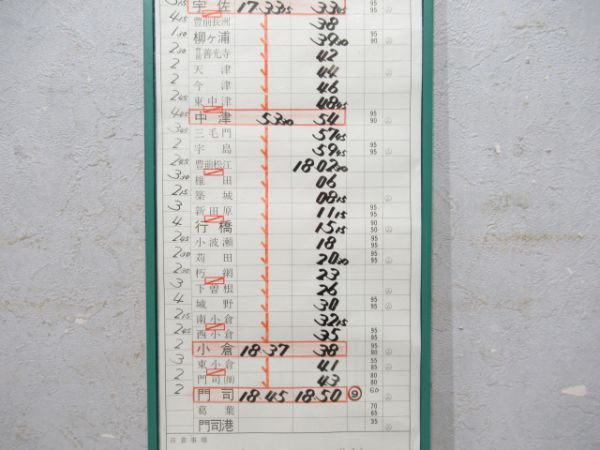 3 15 宇佐 17 33 15 33 45 95 95
4 15 豊前長洲 38
1 30 柳ヶ浦 39 30 95 90
2 30 豊前善光寺 42
2 天津 44
2 今津 46
2 45 東中津 48 45
4 45 中津 53 30 54 95 90
3 45 三毛門 57 45
2 宇島 59 45 95 95
2 45 豊前松江 18 02 30
3 30 椎田 06
2 15 築城 08 15
3 新田原 11 15 95 95
4 行橋 15 15 90 50
2 45 小波瀬 18
2 苅田 20 30 95 95
2 30 朽網 23
3 下曽根 26
4 城野 30 95 95
2 15 南小倉 32 15
2 45 西小倉 35
2 小倉 18 37 38 95 80
3 東小倉 41
2 門司(操) 43 80 80
2 門司 18 45 18 50 ⑨ 60
葛葉 70 65
門司港 35
注意事項